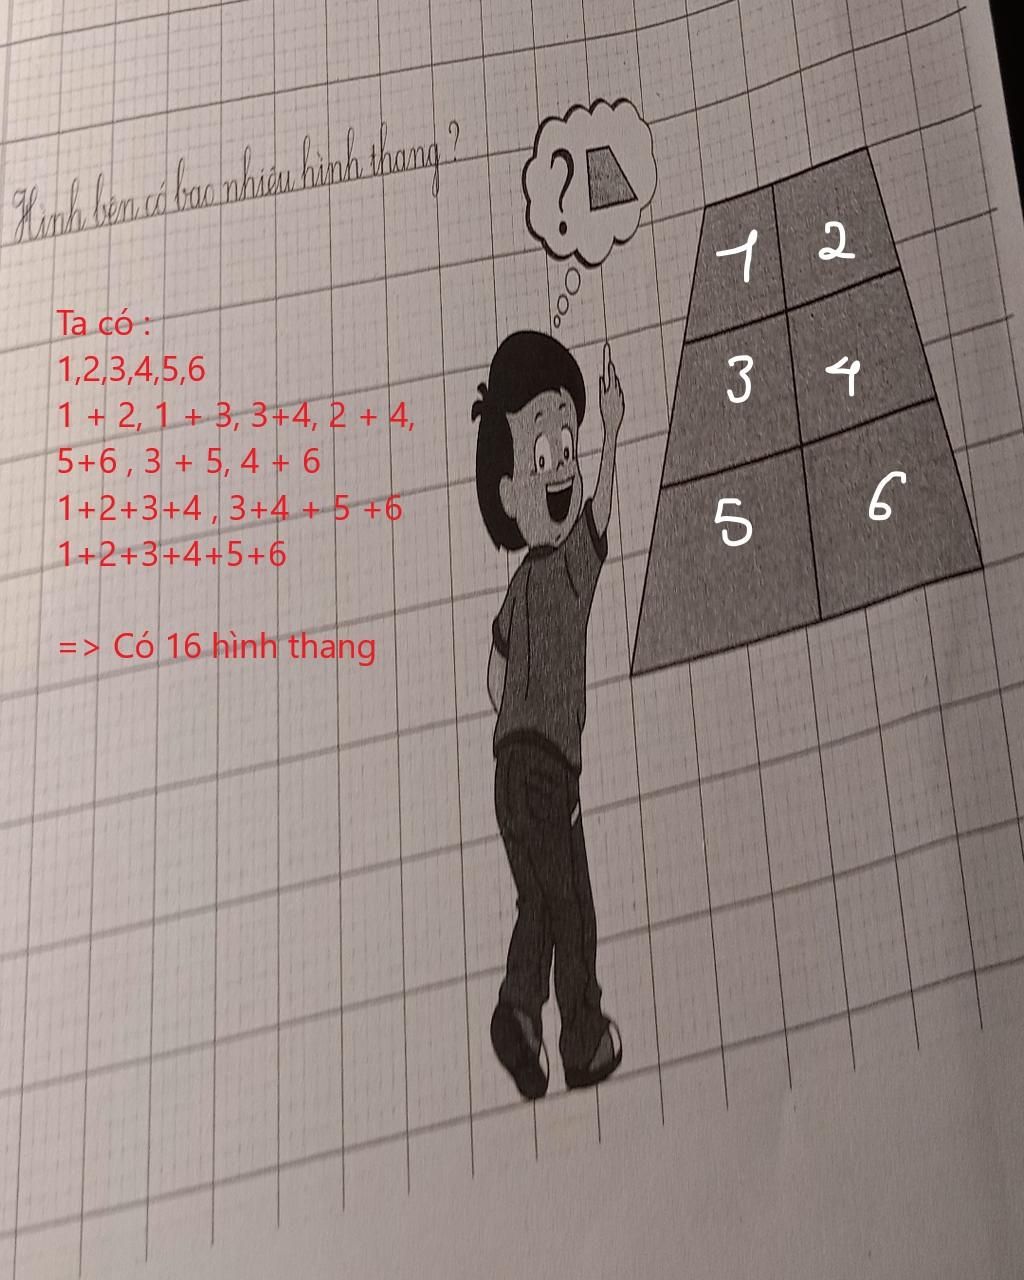 Hình bên có bao nhiêu hình thang ?
?
1 2
3 4
5 6
Ta có :
1,2,3,4,5,6
1 + 2, 1 + 3, 3+4, 2 + 4,
5+6 , 3 + 5, 4 + 6
1+2+3+4 , 3+4 + 5 +6
1+2+3+4+5+6
=> Có 16 hình thang